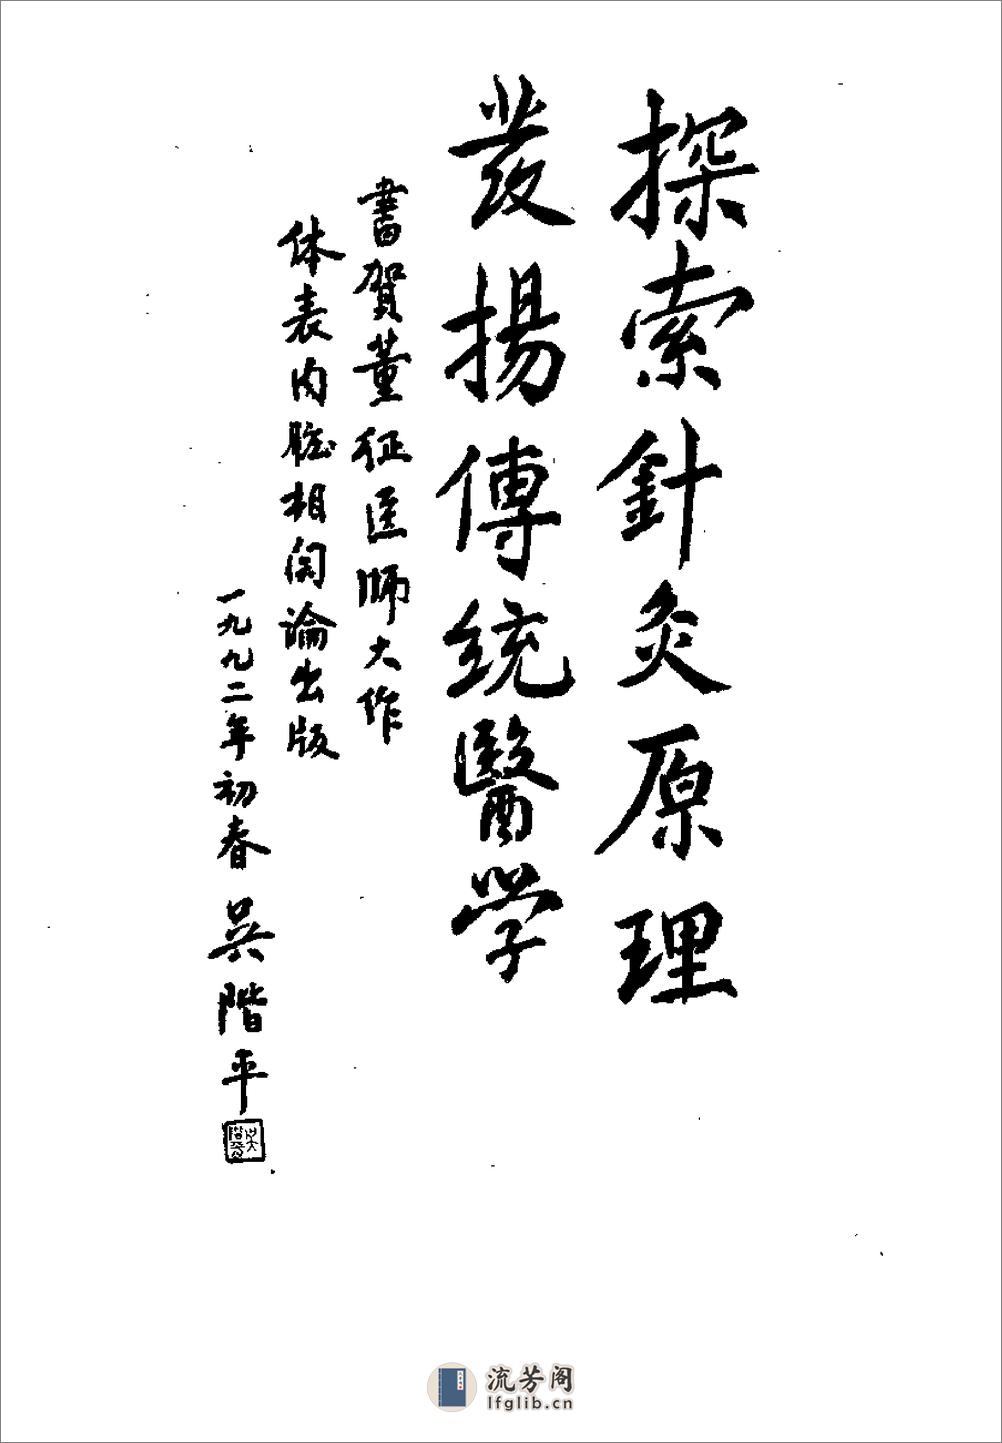 探索針灸原理
发揚傳统醫学
書賀董征医师大作
体表内脏相関論出版
一九九二年初春 吴階平
流芳阁
lfglib.cn